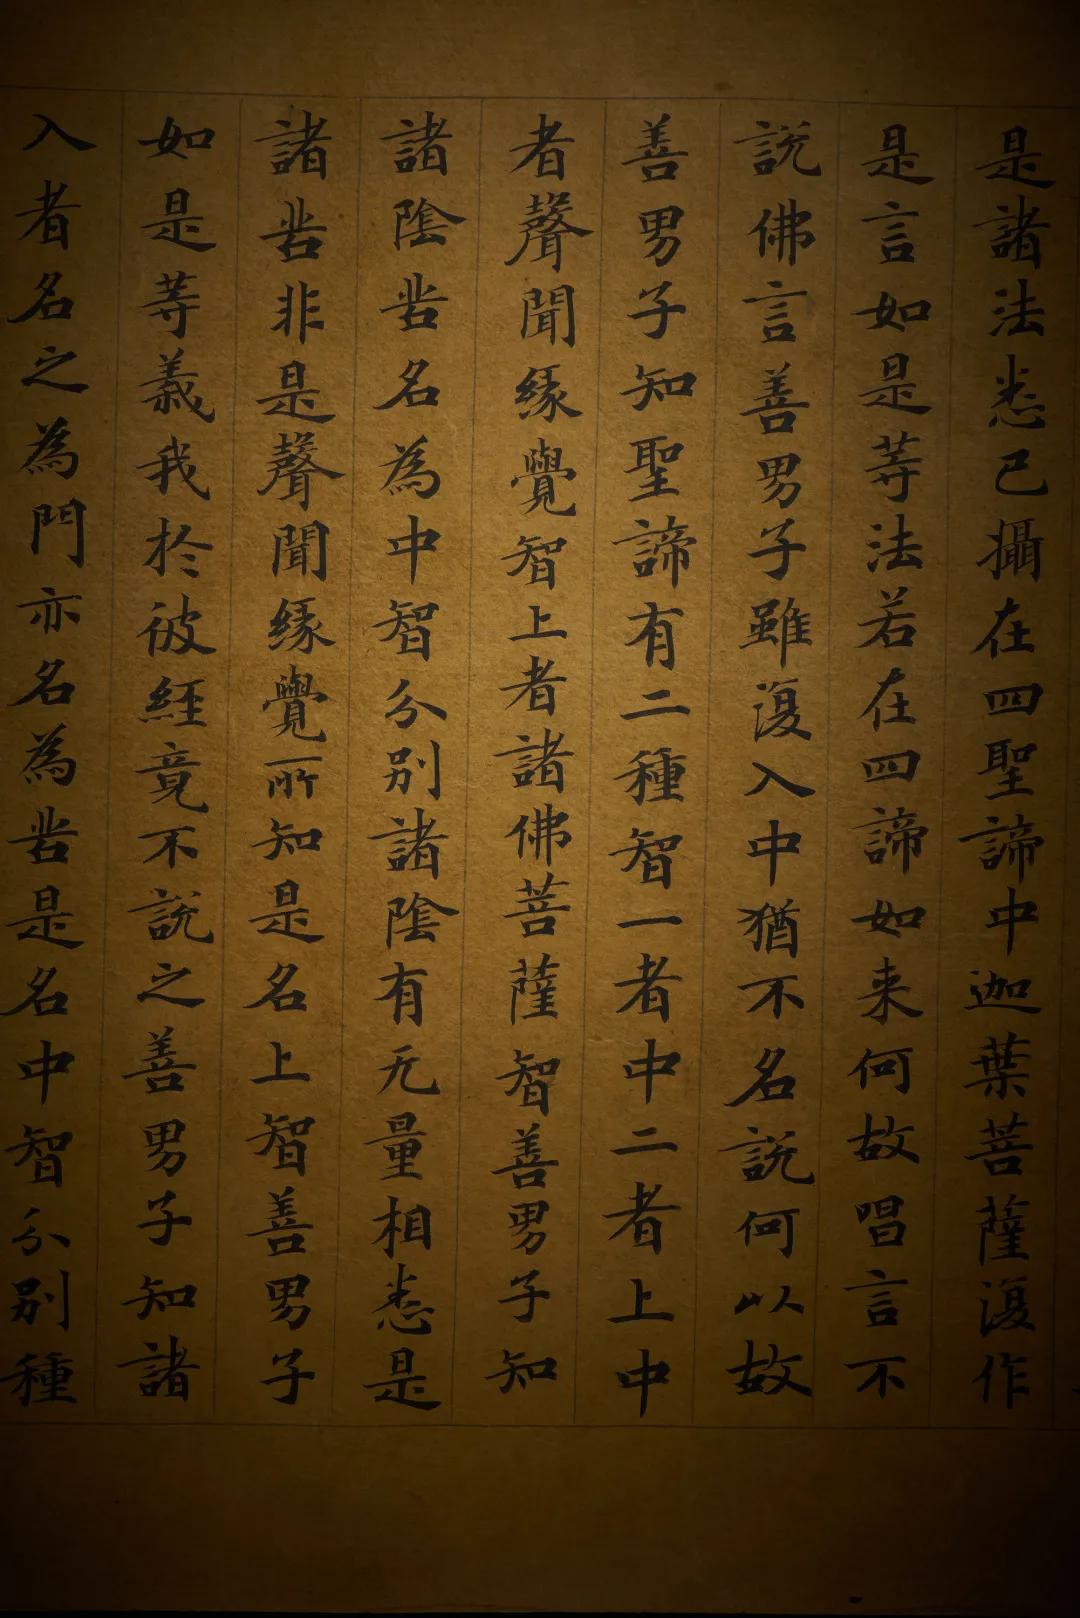 是諸法悉已攝在四聖諦中迦葉菩薩復作
是言如是等法若在四諦如来何故唱言不
說佛言善男子雖復入中猶不名說何以故
善男子知聖諦有二種智一者中二者上中
者聲聞緣覺智上者諸佛菩薩智善男子知
諸陰苦名為中智分別諸陰有无量相悉是
諸苦非是聲聞緣覺所知是名上智善男子
如是等義我於彼經竟不說之善男子知諸
入者名之為門亦名為苦是名中智分別種